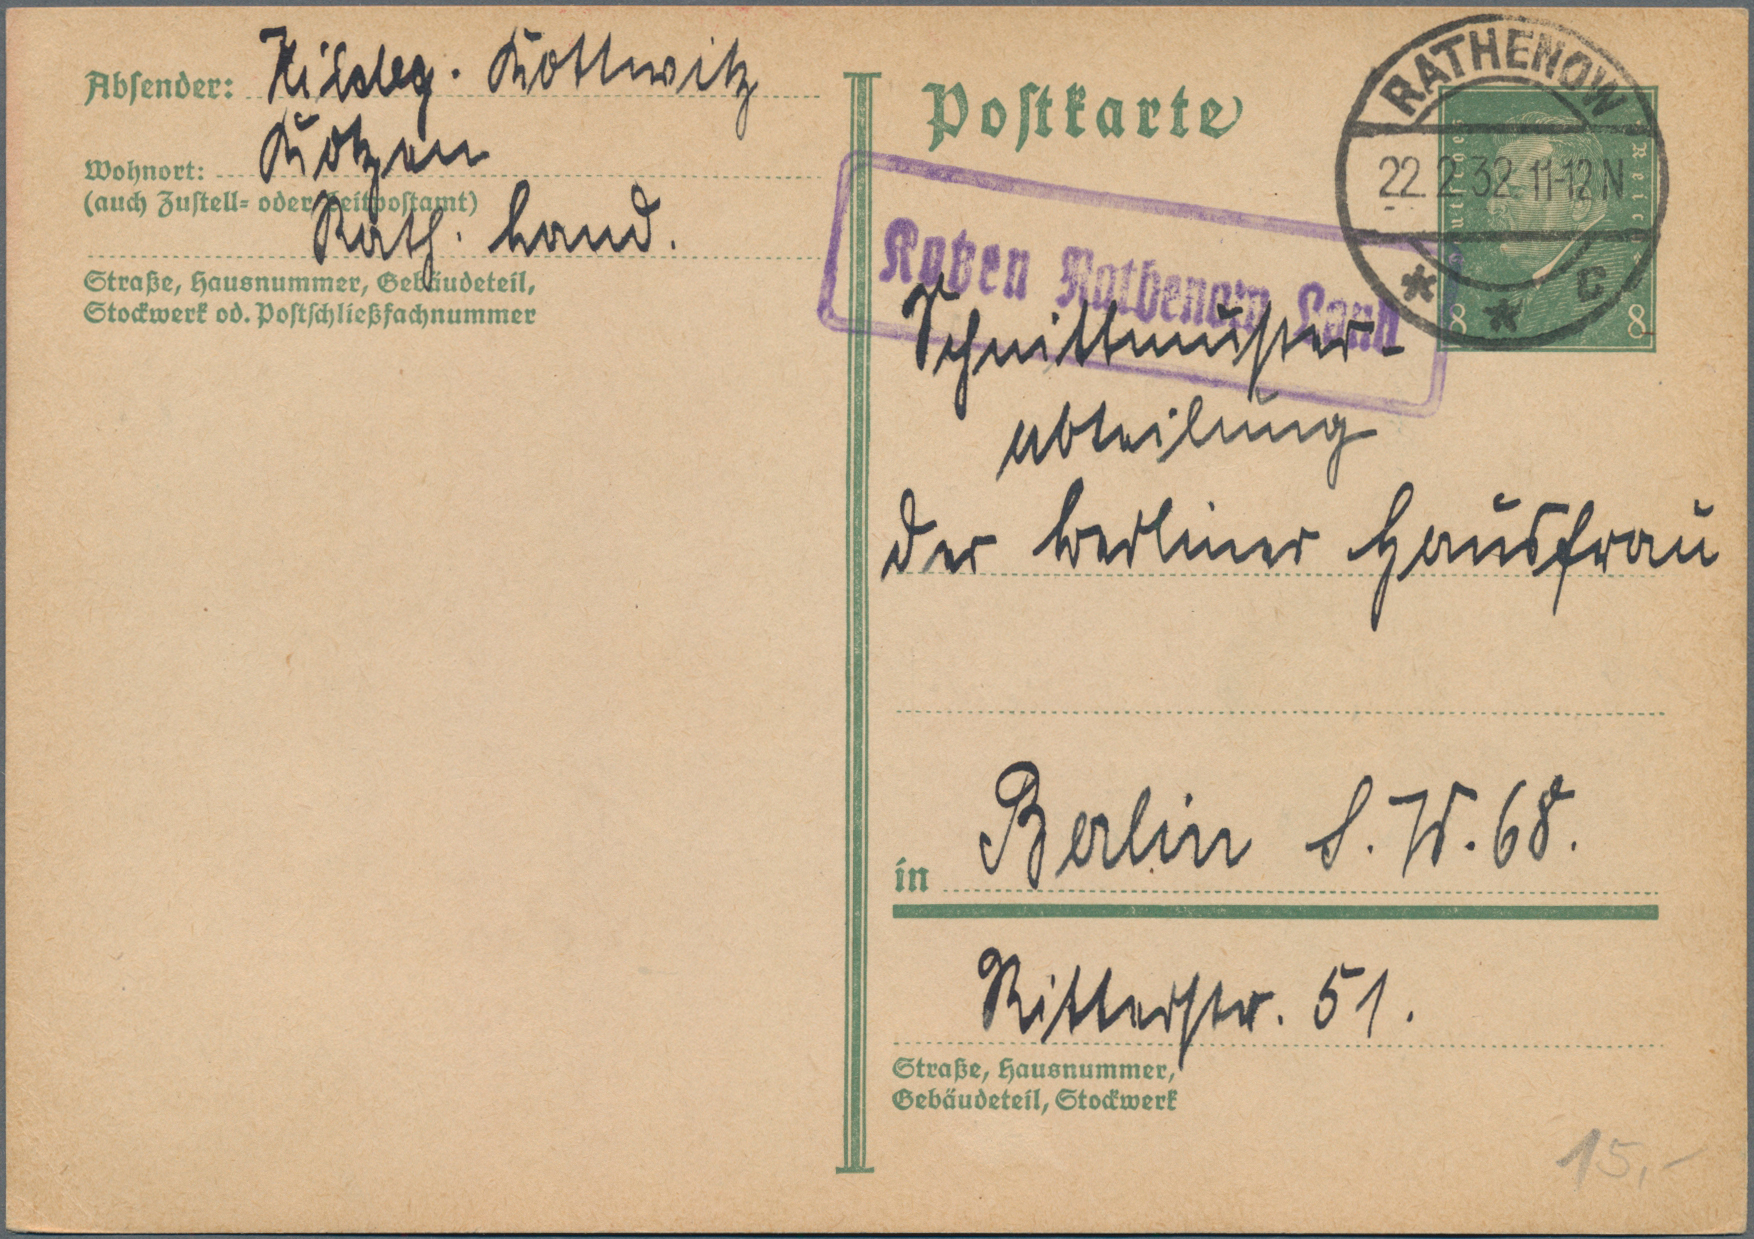 Absender: Hildeg. Kottwitz
Wohnort: Kotzen
(auch Zustell- oder Leitpostamt)
Rath. Land.
Straße, Hausnummer, Gebäudeteil,
Stockwerk od. Postschließfachnummer
Postkarte
RATHENOW
22.2.32.11-12N
* * c
Deutsches Reich
8 8
Kotzen Rathenow Land
Schnittmuster-
abteilung
der Berliner Hausfrau
in Berlin S.W.68.
Ritterstr. 51.
Straße, Hausnummer,
Gebäudeteil, Stockwerk
15,-